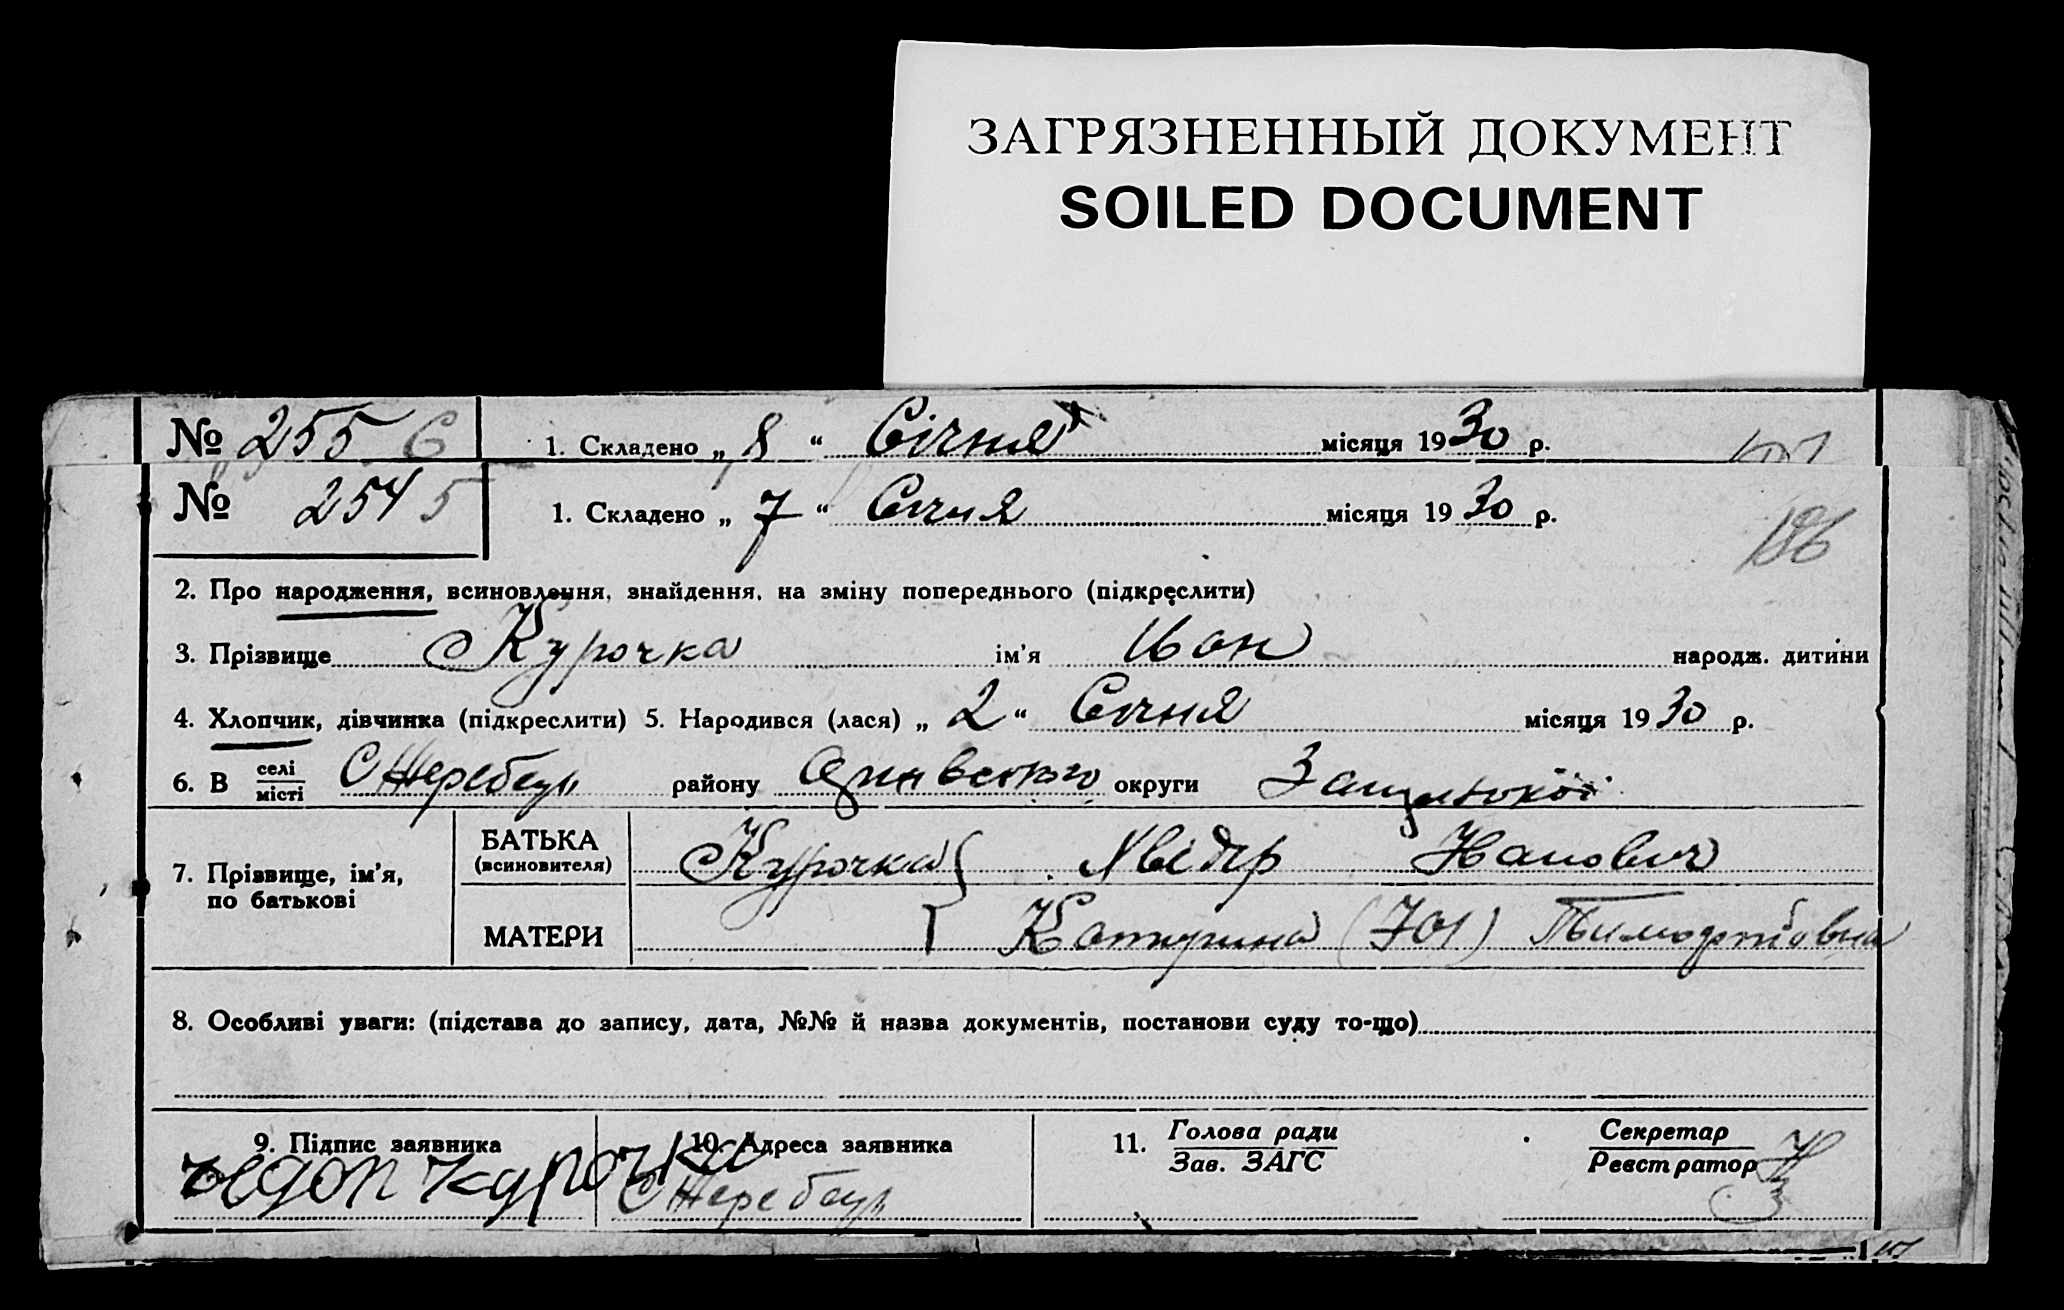 ЗАГРЯЗНЕННЫЙ ДОКУМЕНТ
SOILED DOCUMENT
№ 255 6 1. Складено „ 8 “ Січня місяця 1930 р.
№ 254 5 1. Складено „ 7 “ Січня місяця 1930 р.
186
2. Про народження, всиновлення, знайдення, на зміну попереднього (підкреслити)
3. Прізвище Курочка ім'я Іван народж. дитини
4. Хлопчик, дівчинка (підкреслити) 5. Народився (лася) „ 2 “ Січня місяця 1930 р.
6. В селі місті С Жеребець району округи
7. Прізвище, ім'я, по батькові
БАТЬКА (всиновителя) Курочка
МАТЕРИ Катерина Тимофіївна
8. Особливі уваги: (підстава до запису, дата, №№ й назва документів, постанови суду то-що)
9. Підпис заявника 10. Адреса заявника 11. Голова ради Секретар
Зав. ЗАГС Реєстратор
Курочка С Жеребець